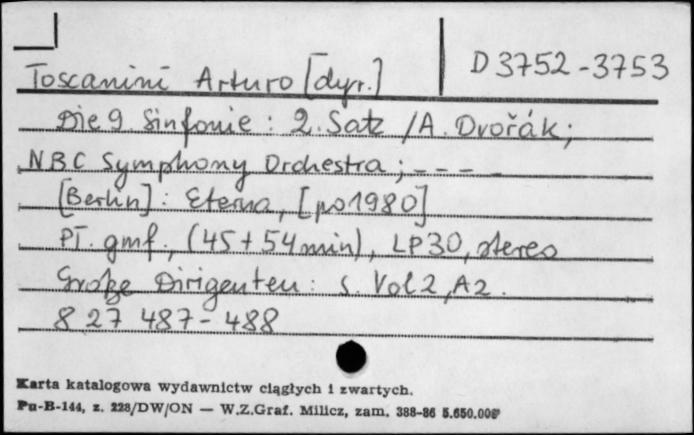 D 3752 - 3753
Toscanini Arturo [dyr.]
Die 9. Sinfonie : 2. Satz / A. Dvořák ;
NBC Symphony Orchestra ; - - - -
[Berlin] : Eterna, [po 1980]
Pł. gmf., (45 + 54 min), LP30, stereo
Große Dirigenten : s. Vol 2, A2.
8 27 487 - 488
Karta katalogowa wydawnictw ciągłych i zwartych.
Pu-B-144, z. 228/DW/ON — W.Z.Graf. Milicz, zam. 388-86 5.650.000